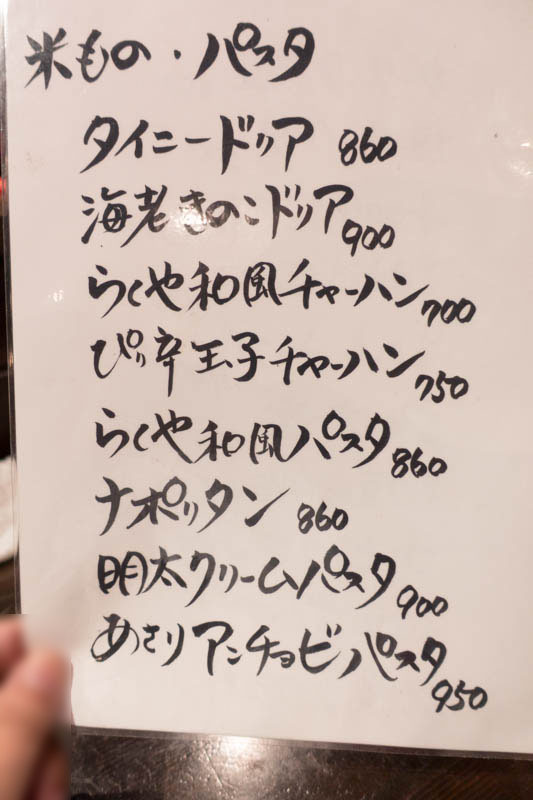 米もの・パスタ
タイニードリア 860
海老きのこドリア 900
らくや和風チャーハン 700
ぴり辛玉子チャーハン 750
らくや和風パスタ 860
ナポリタン 860
明太クリームパスタ 900
あさりアンチョビパスタ 950